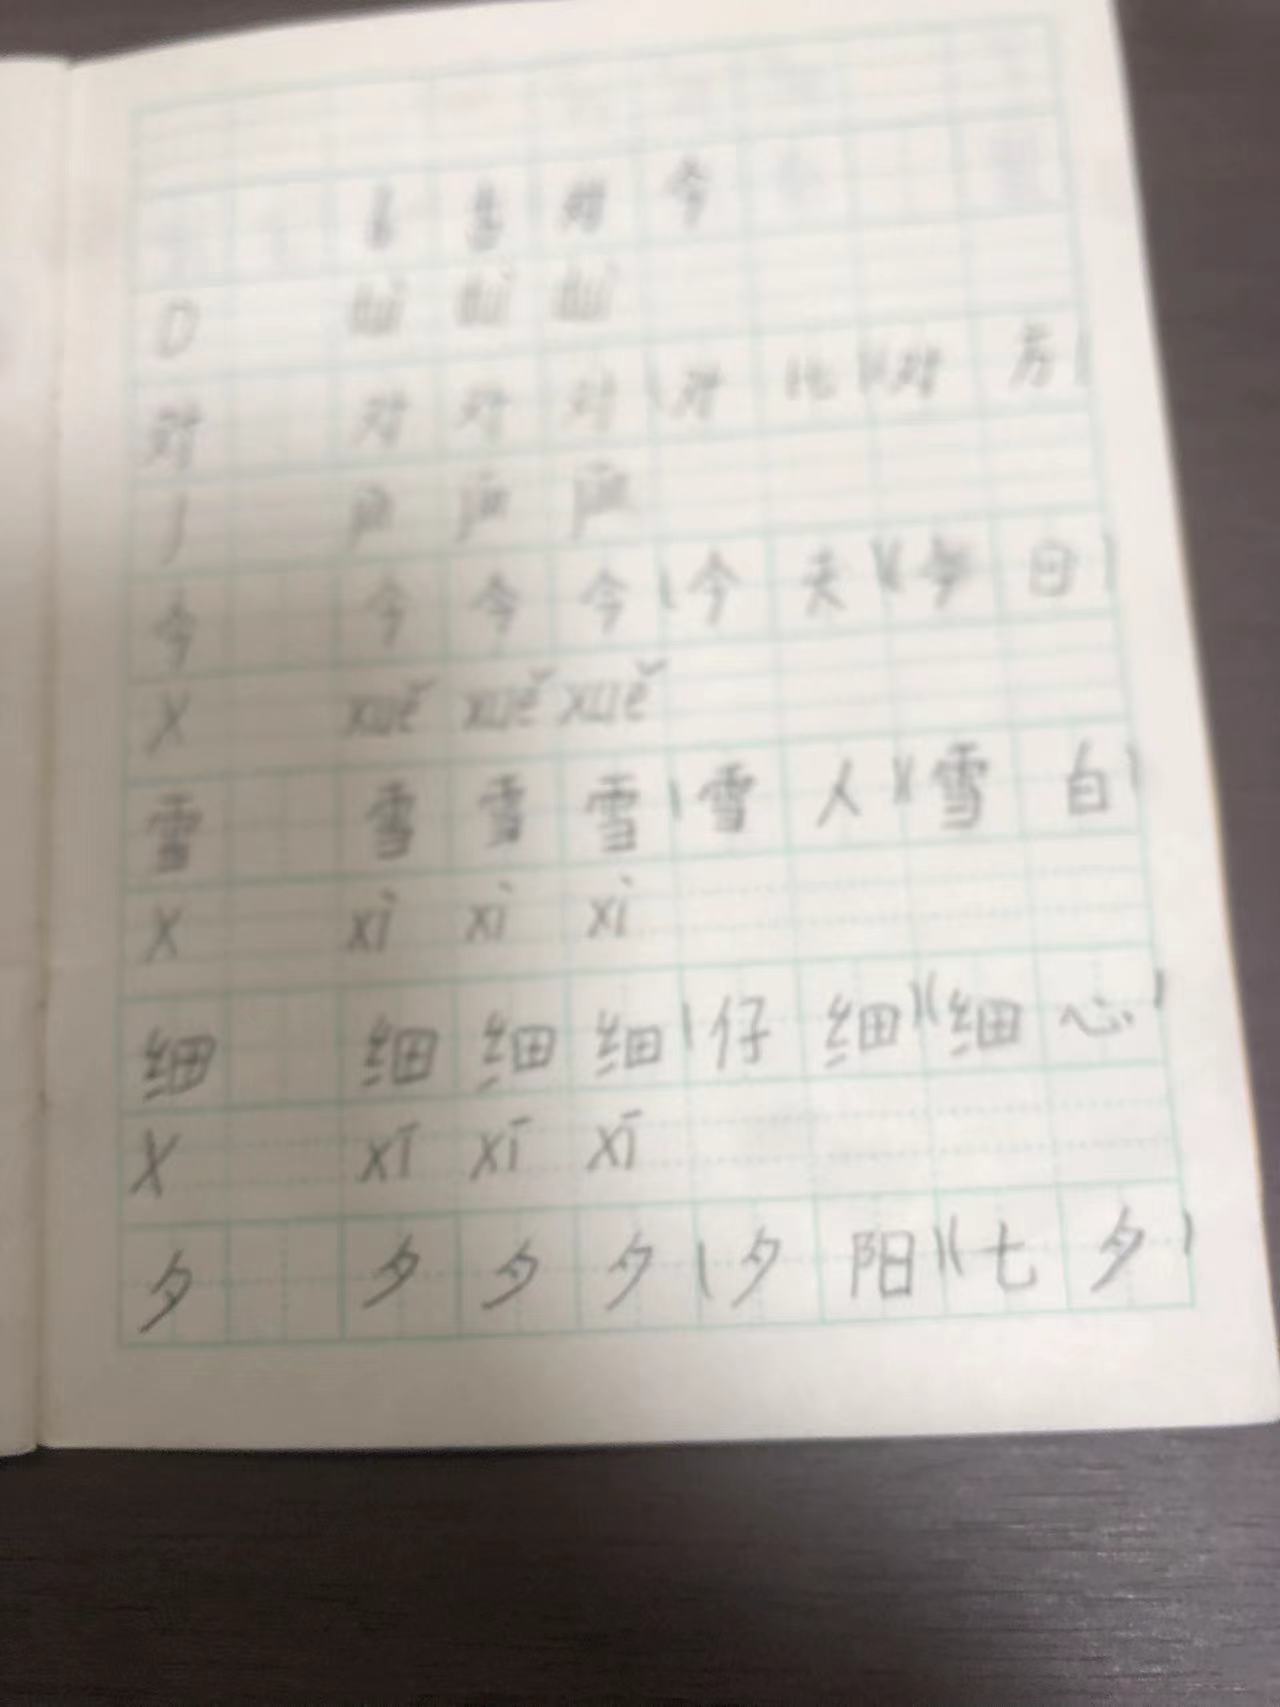 对 今
D duì duì duì
对 对 对 对（对 比）（对 方）
J jīn jīn jīn
今 今 今 今（今 天）（今 日）
X xuě xuě xuě
雪 雪 雪 雪（雪 人）（雪 白）
X xì xì xì
细 细 细 细（仔 细）（细 心）
X xī xī xī
夕 夕 夕 夕（夕 阳）（七 夕）